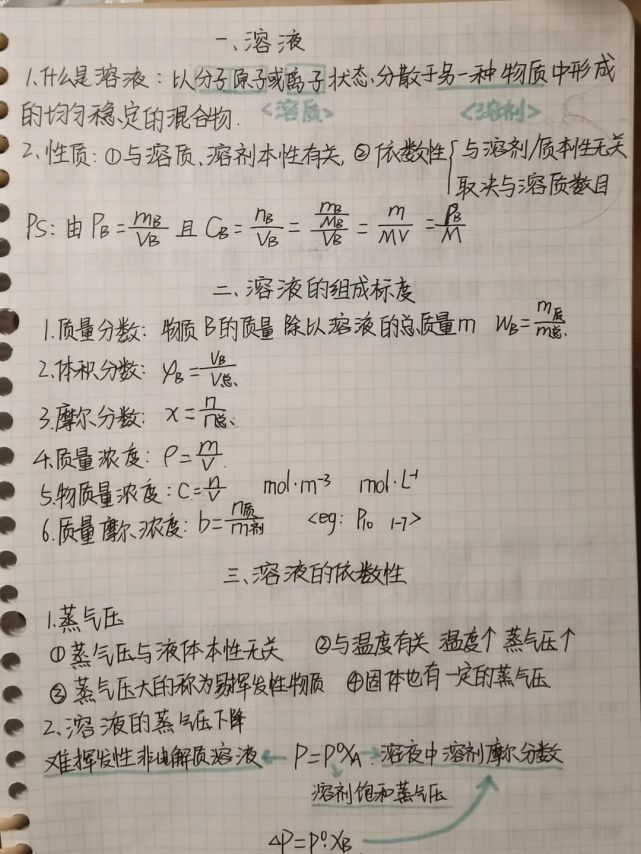 一、溶液
1.什么是溶液：以分子原子或离子状态、分散于另一种物质中形成
的均匀稳定的混合物.
<溶质> <溶剂>
2、性质：①与溶质、溶剂本性有关, ②依数性{与溶剂/质本性无关
取决与溶质数目
PS：由 ρB = mB/VB 且 CB = nB/VB = (mB/MB)/VB = m/MV = ρB/M
二、溶液的组成标度
1.质量分数：物质B的质量除以溶液的总质量m WB = m质/m总.
2.体积分数：φB = VB/V总.
3.摩尔分数：x = n/n总.
4.质量浓度：ρ = m/V.
5.物质量浓度：C = n/V mol·m⁻³ mol·L⁻¹
6.质量摩尔浓度：b = n质/m剂 <eg：P10 1-7>
三、溶液的依数性
1.蒸气压
①蒸气压与液体本性无关 ②与温度有关 温度↑ 蒸气压↑
③蒸气压大的称为易挥发性物质 ④固体也有一定的蒸气压
2、溶液的蒸气压下降
难挥发性非电解质溶液 ← P=P⁰xA → 溶夜中溶剂摩尔分数
↓
溶剂饱和蒸气压
ΔP=P⁰·XB